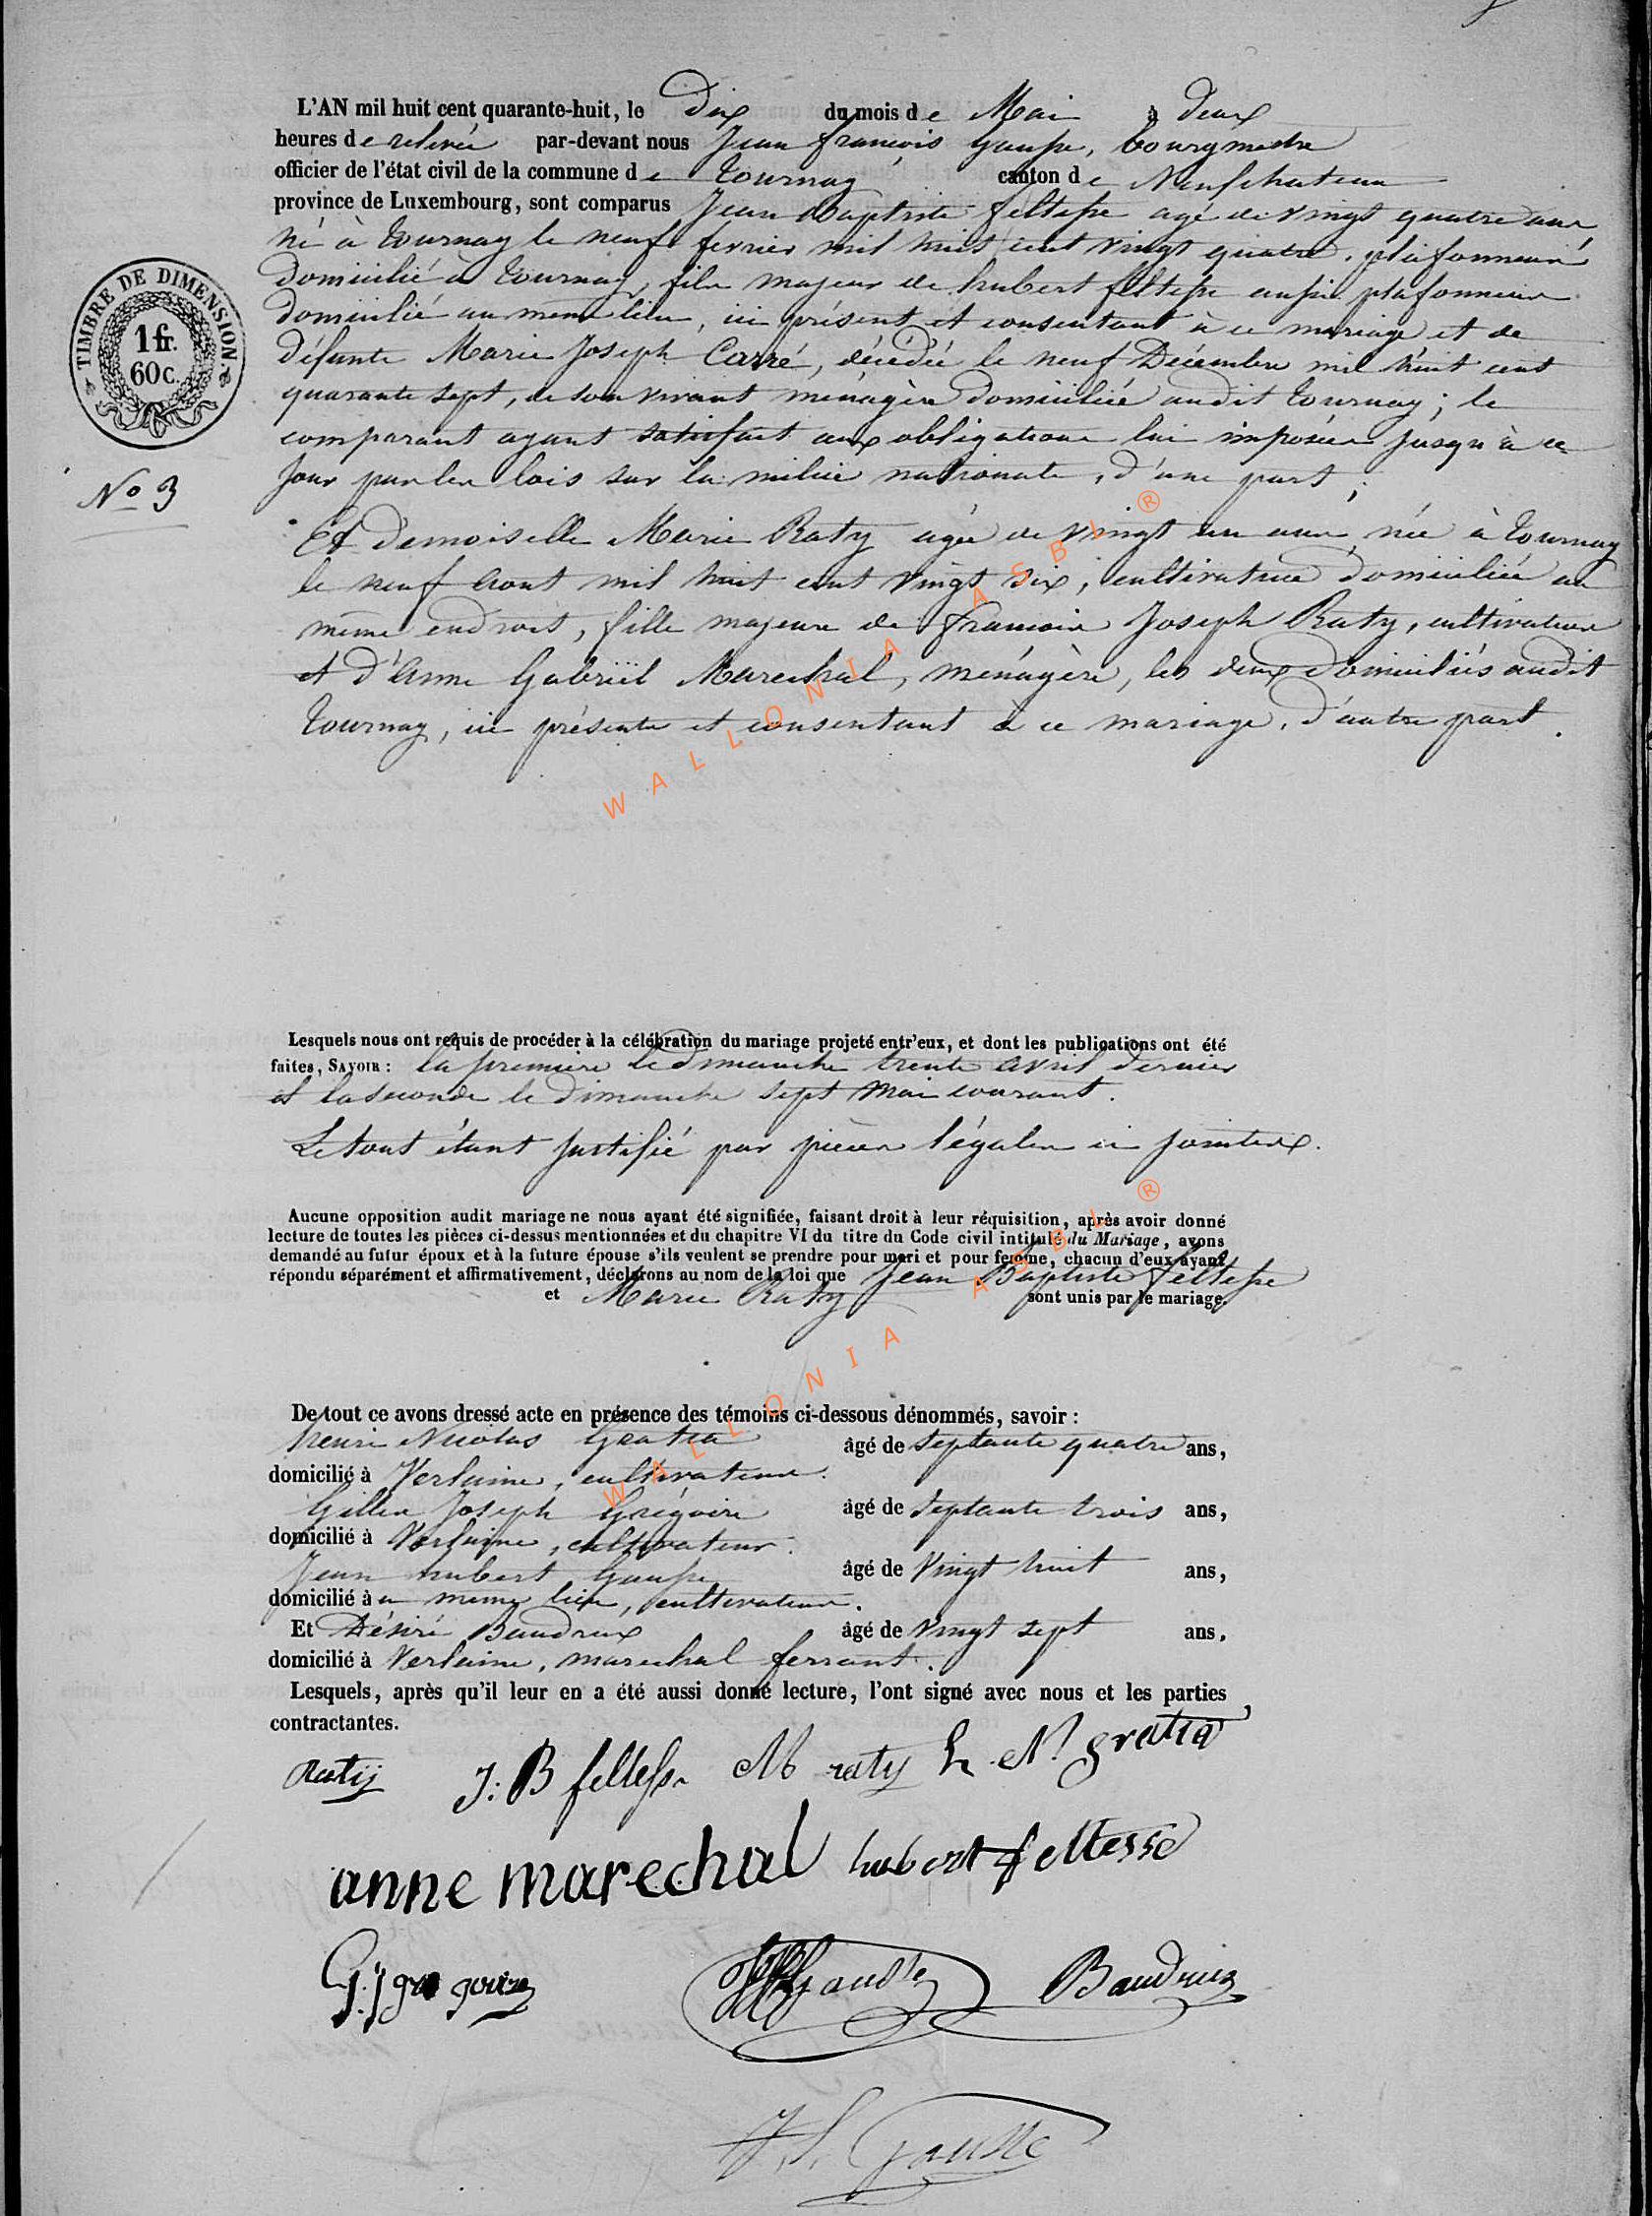 L'AN mil huit cent quarante-huit, le Dix du mois de Mai à deux
heures de relevée par-devant nous Jean françois Gausse, bourgmestre
officier de l'état civil de la commune de Tournay canton de Neufchateau
province de Luxembourg, sont comparus Jean Baptiste feltesse agé de vingt quatre ans
né à Tournay le neuf fevrier mil huit cent vingt quatre, plafonneur
TIMBRE DE DIMENSION
1 fr.
60 c.
Domicilié à Tournay, fils majeur de hubert feltesse aussi plafonneur
Domicilié au meme lieu, ici présent et consentant à ce mariage et de
défunte Marie Joseph Carré, décédée le neuf Décembre mil huit cent
quarante sept, de son vivant ménagère Domiciliée audit Tournay; le
comparant ayant satisfait aux obligations lui imposées jusqu'à ce
Jour par les lois sur la milice nationale, d'une part;
No 3
Et Demoiselle Marie Raty agée de vingt un ans, née à Tournay
le neuf Aout mil huit cent vingt six, cultivatrice Domiciliée au
même endroit, fille majeure de francois Joseph Raty, cultivateur
et d'Anne Gabriël Marechal, ménagère, les deux Domiciliés audit
Tournay, ici présents et consentant à ce mariage, d'autre part.
WALLONIA ASBL ®
Lesquels nous ont requis de procéder à la célébration du mariage projeté entr'eux, et dont les publications ont été
faites, SAVOIR : la premiere le dimanche trente avril dernier
et la seconde le dimanche sept Mai courant.
Le tout étant justifié par pièces légales ci jointes.
Aucune opposition audit mariage ne nous ayant été signifiée, faisant droit à leur réquisition, après avoir donné
lecture de toutes les pièces ci-dessus mentionnées et du chapitre VI du titre du Code civil intitulé du Mariage, avons
demandé au futur époux et à la future épouse s'ils veulent se prendre pour mari et pour femme, chacun d'eux ayant
répondu séparément et affirmativement, déclarons au nom de la loi que Jean Baptiste feltesse
et Marie Raty sont unis par le mariage.
WALLONIA ASBL ®
De tout ce avons dressé acte en présence des témoins ci-dessous dénommés, savoir :
henri Nicolas Gratia âgé de septante quatre ans,
domicilié à Verlaine, cultivateur.
Gilles Joseph Grégoire âgé de septante trois ans,
domicilié à Verlaine, cultivateur.
Jean hubert Gausse âgé de vingt huit ans,
domicilié à u meme lieu, cultivateur.
Et Désiré Baudrux âgé de vingt sept ans,
domicilié à Verlaine, marechal ferrant.
Lesquels, après qu'il leur en a été aussi donné lecture, l'ont signé avec nous et les parties
contractantes.
Ratij J: B feltesse M raty h. N. gratia
anne marechal hubert feltesse
G: j gregoire Gausse Baudrux
J. f. Gausse